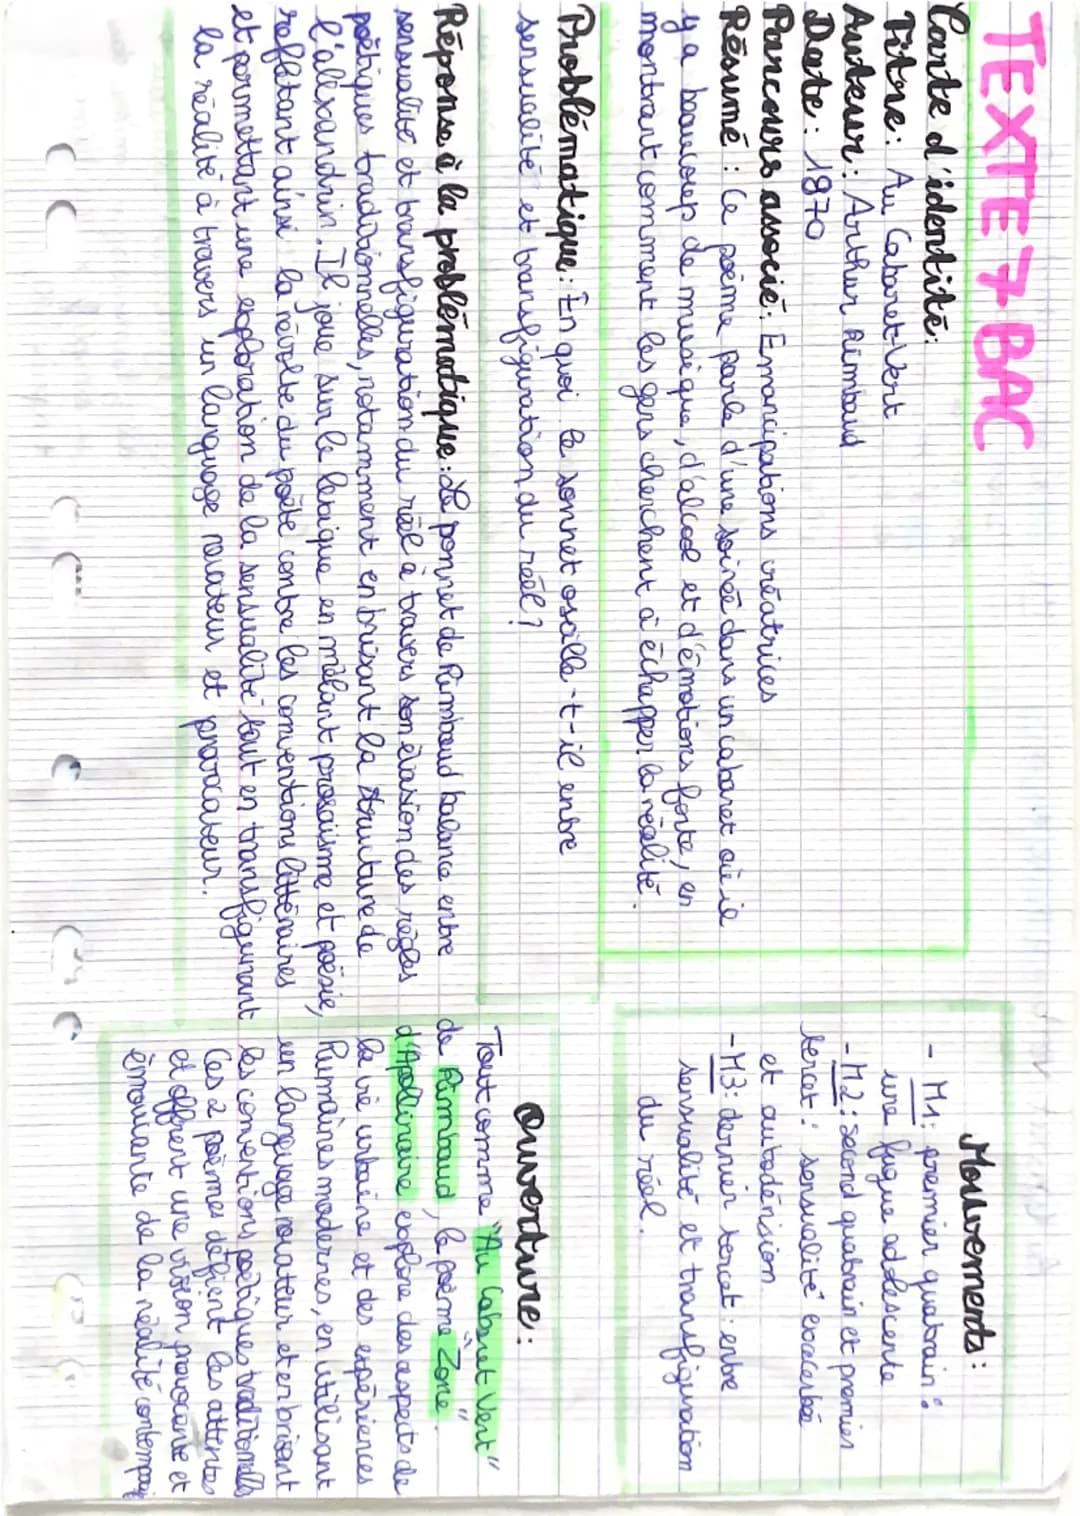 TEXTE 7 BAC
Carte d'identité:
Titre: Au Cabaret-Vert
Auteur: Arthur Rimbaud
Date: 1870
Parcours associé: Emancipations créatrices
Résumé: Ce poème parle d'une soirée dans un cabaret où il
y a beaucoup de musique, d'alcool et d'émotions forte, en
montrant comment les gens cherchent à échapper la réalité.
Problématique: En quoi le sonnet oscille-t-il entre
sensualité et transfiguration du réel?
Réponse à la problématique: Le sonnet de Rimbaud balance entre
sensualité et transfiguration du réel à travers son évasion des règles
poétiques traditionnelles, notamment en brisant la structure de
l'alexandrin. Il joue sur le lexique en mêlant prosaïsme et poésie,
reflétant ainsi la révolte du poète contre les conventions littéraires
et permettant une exploration de la sensualité tout en transfigurant
la réalité à travers un language novateur et provocateur.
Mouvements:
- M1: premier quatrain:
une fugue adolescente
- M2: second quatrain et premier
tercet: sensualité exacerbée
et autodérision
- M3: dernier tercet: entre
sensualité et transfiguration
du réel.
Ouverture:
Tout comme "Au Cabaret Vert"
de Rimbaud, le poème "Zone"
d'Apollinaire explore des aspects de
la vie urbaine et des expériences
humaines modernes, en utilisant
un language novateur et en brisant
les conventions poétiques traditionnelles
Ces 2 poèmes défient les attentes
et offrent une vision provocante et
émouvante de la réalité